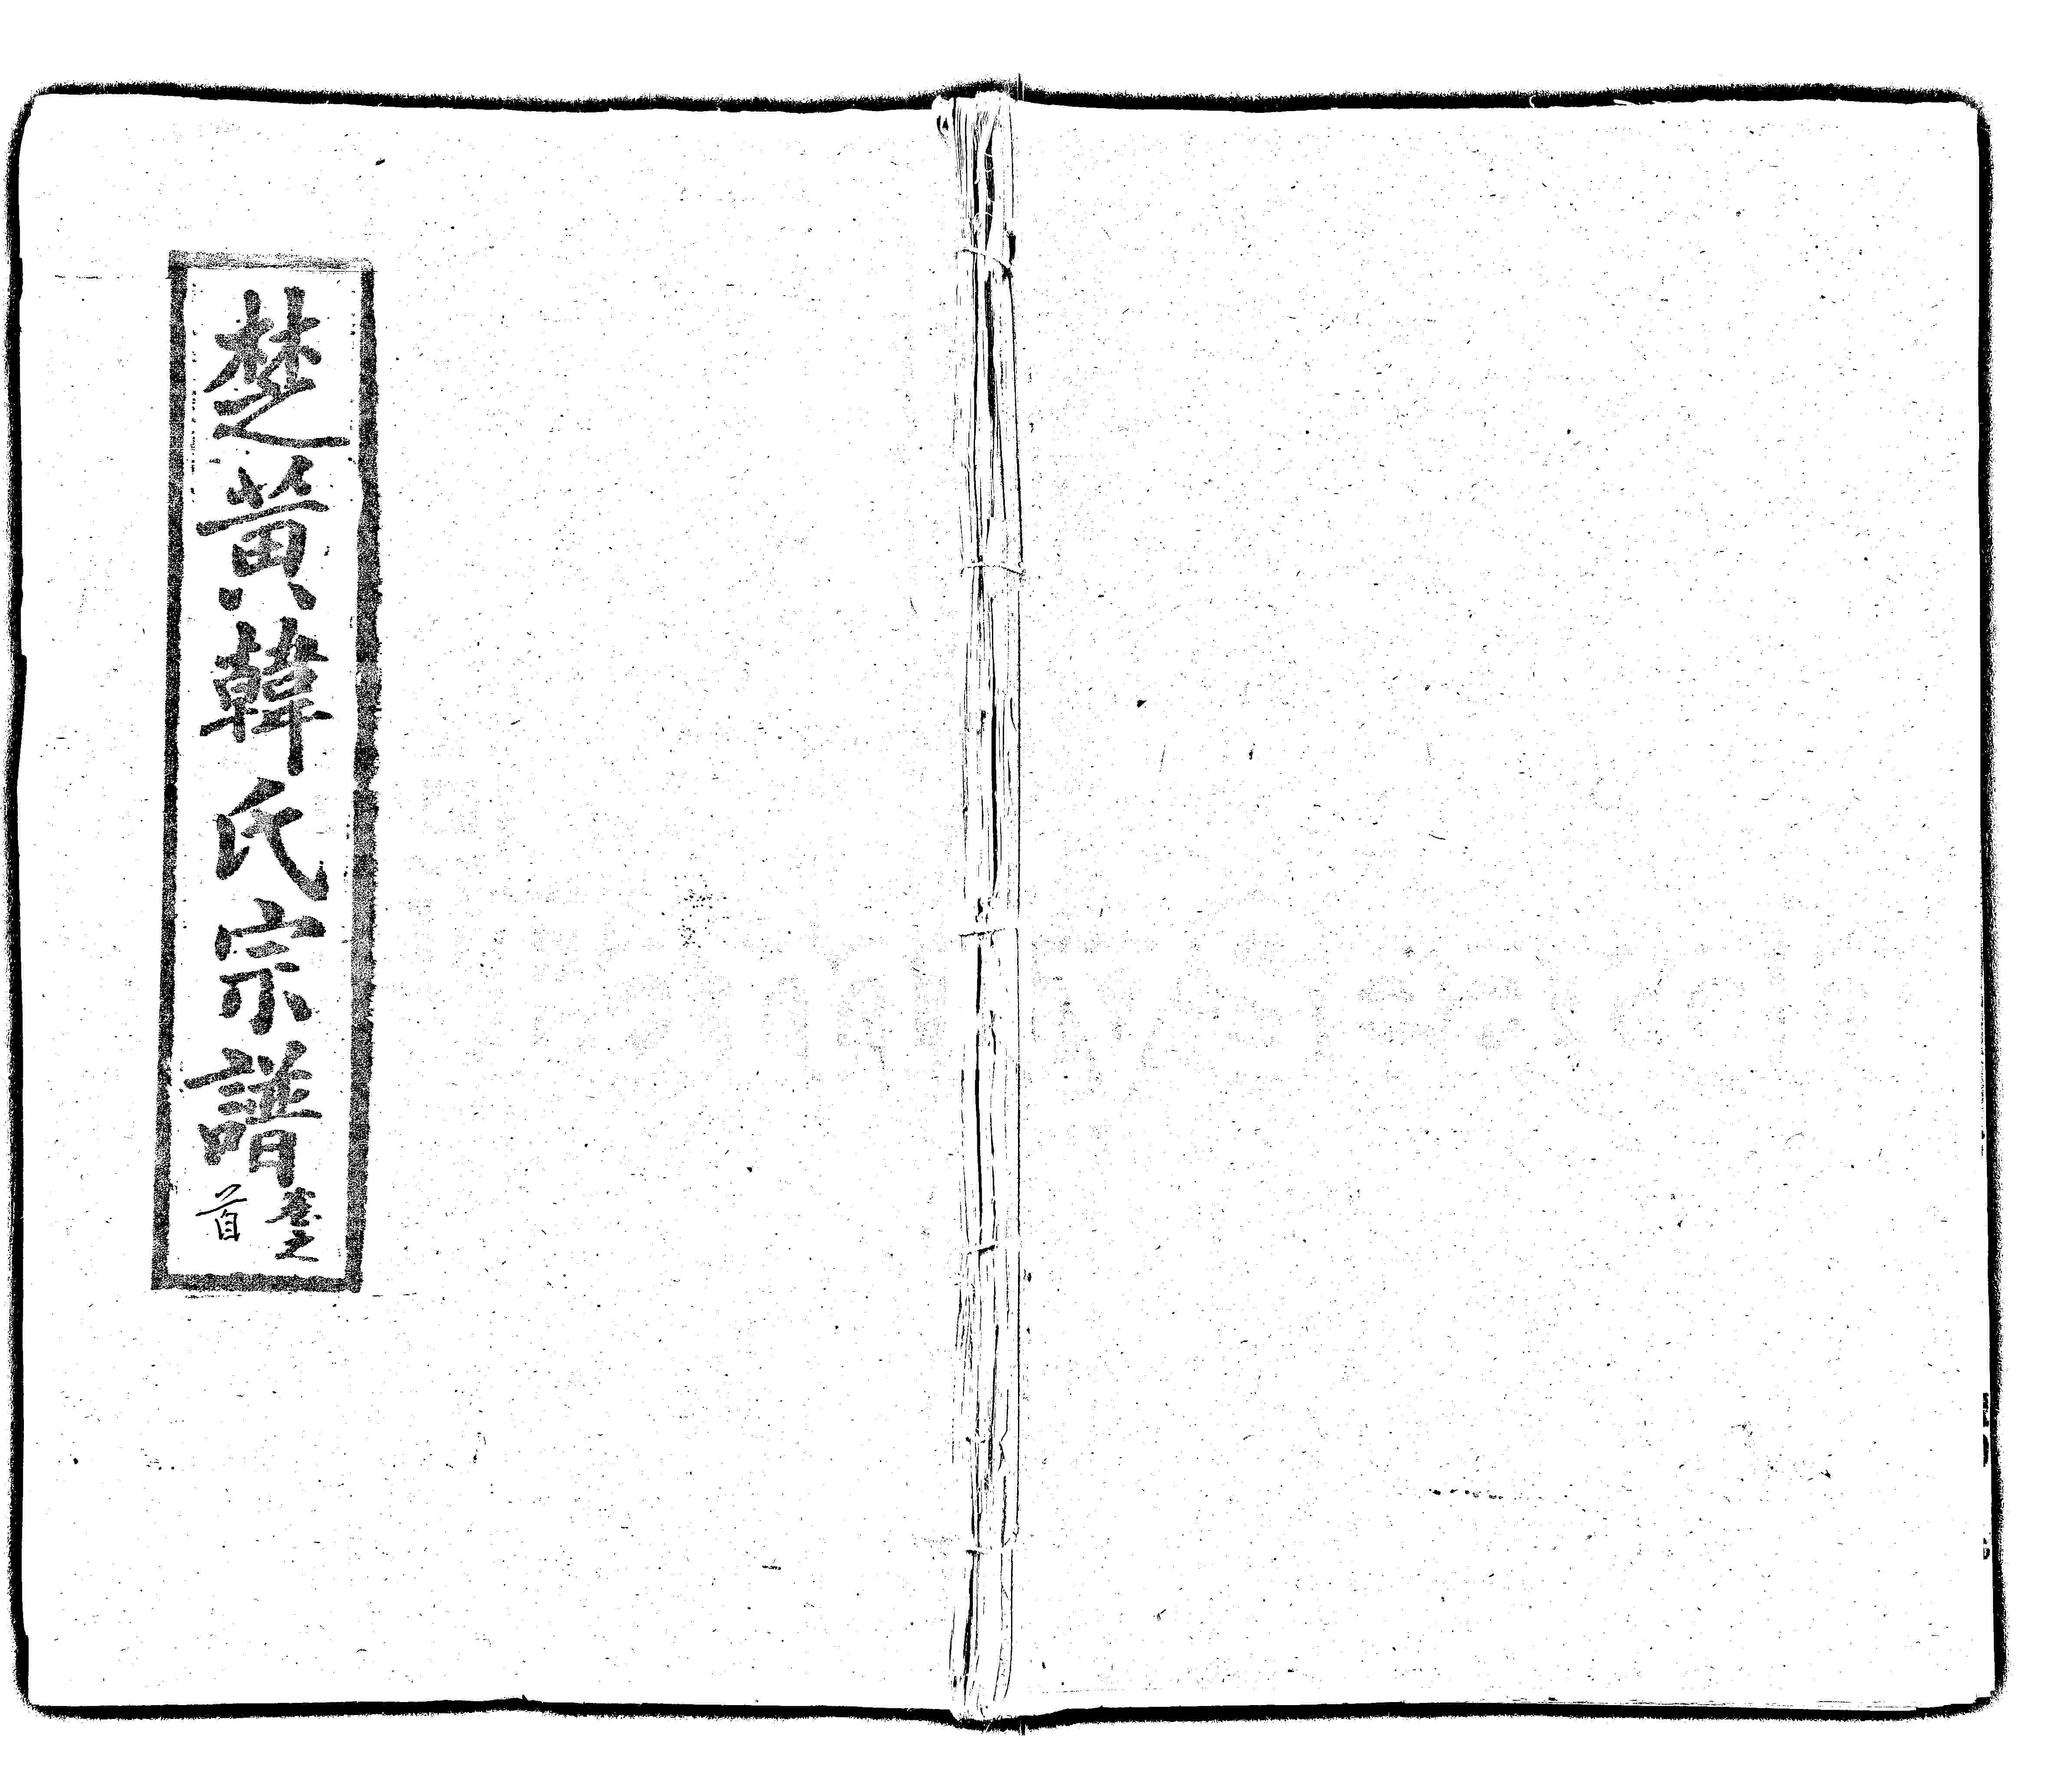 楚黃韓氏宗譜
卷之
首